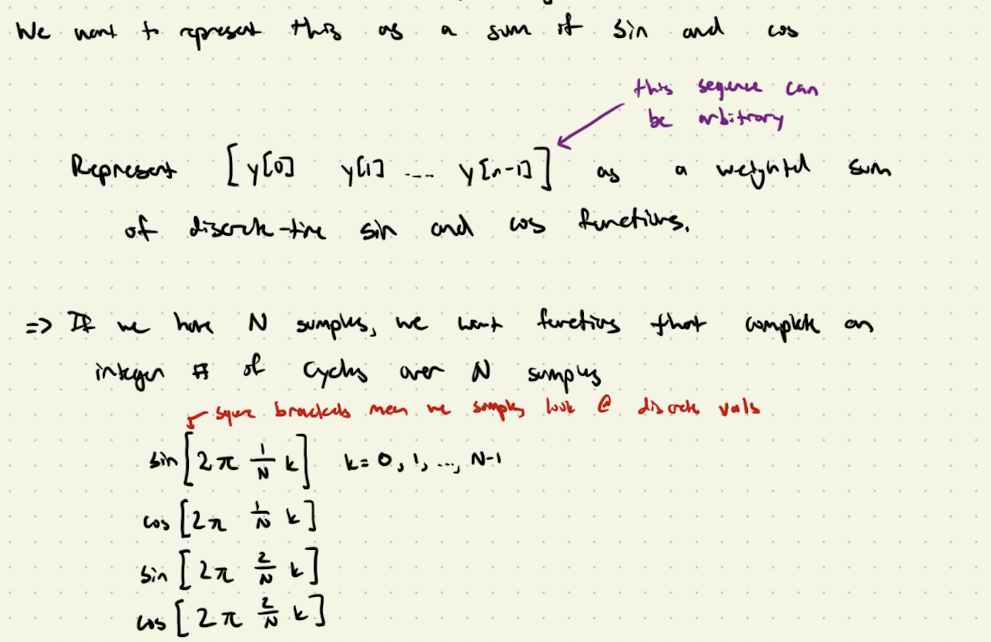 We want to represent this as a sum of sin and cos
this sequence can
be arbitrary
Represent [y[0] y[1] ... y[n-1]] as a weighted sum
of discrete-time sin and cos functions.
=> If we have N samples, we want functions that complete an
integer # of cycles over N samples
square brackets mean we simply look @ discrete vals
sin[2π 1/N k] k = 0, 1, ..., N-1
cos[2π 1/N k]
sin[2π 2/N k]
cos[2π 2/N k]